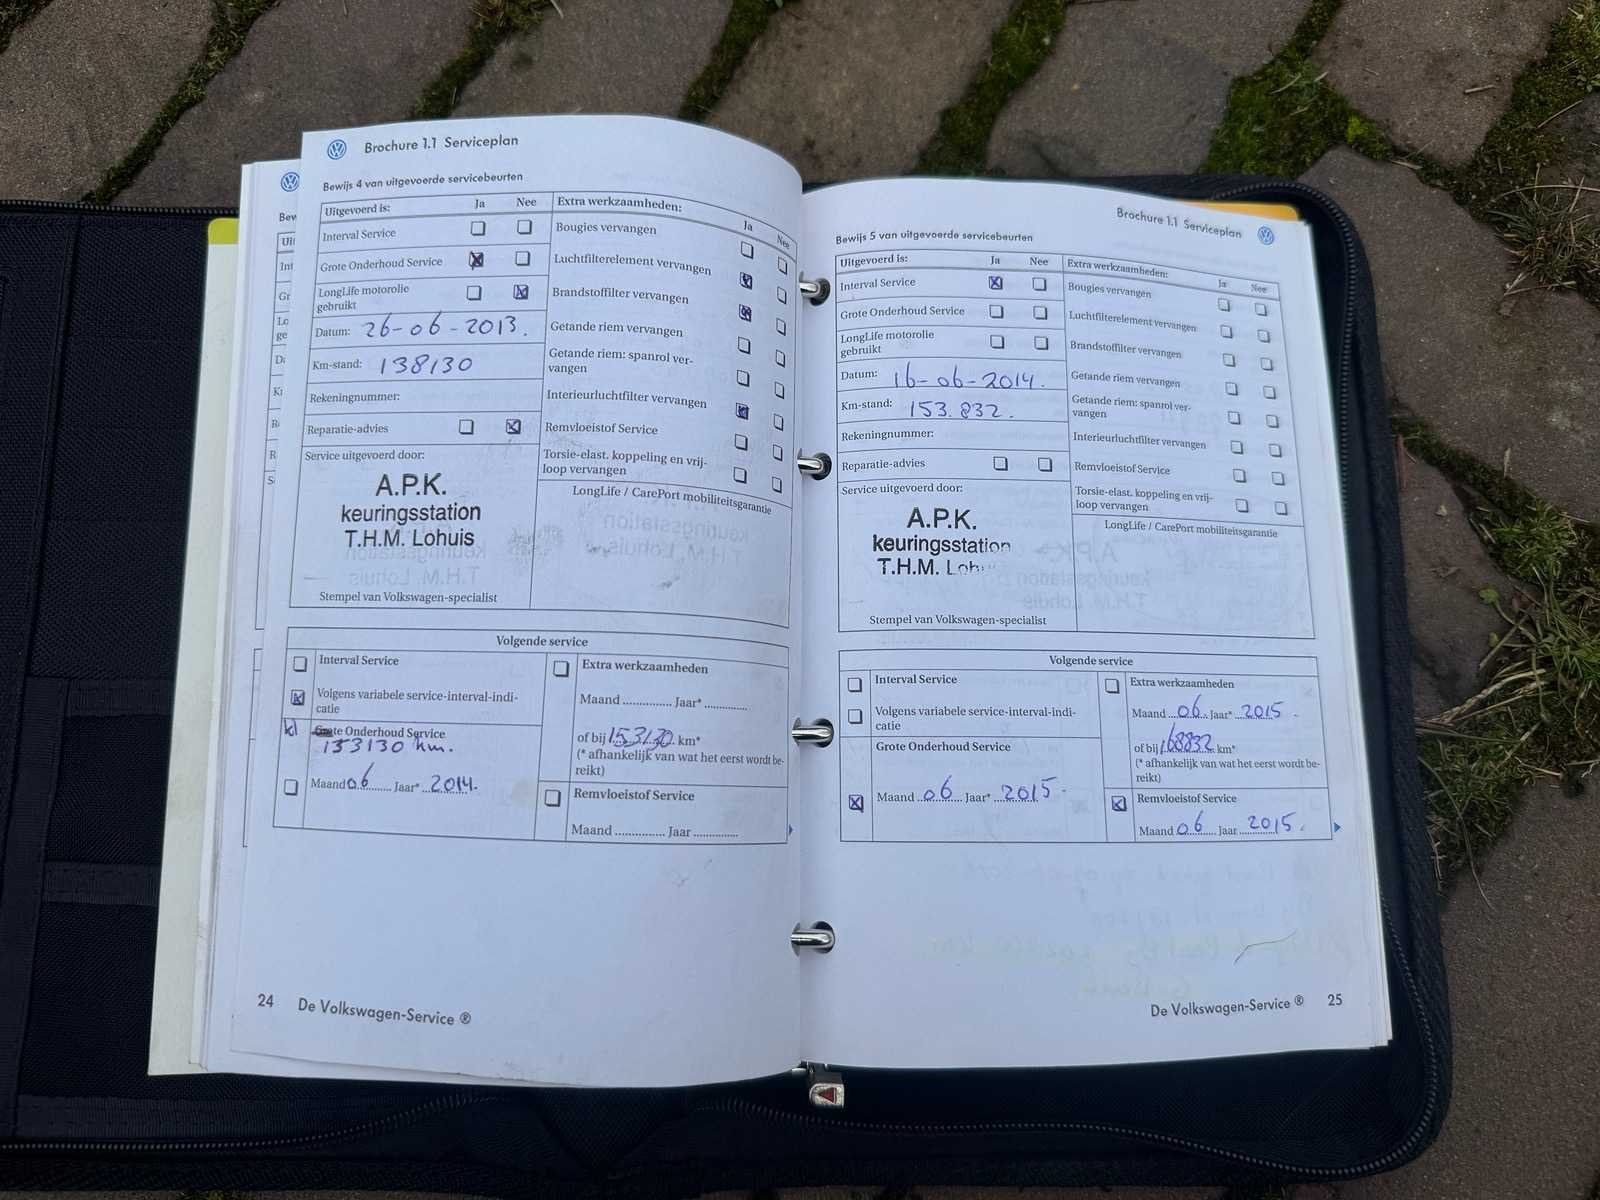 Brochure 1.1 Serviceplan
Bewijs 4 van uitgevoerde servicebeurten
Uitgevoerd is: Ja Nee
Interval Service
Grote Onderhoud Service
LongLife motorolie
gebruikt
Datum: 26-06-2013.
Km-stand: 138130
Rekeningnummer:
Reparatie-advies
Service uitgevoerd door:
A.P.K.
keuringsstation
T.H.M. Lohuis
Stempel van Volkswagen-specialist
Extra werkzaamheden:
Ja Nee
Bougies vervangen
Luchtfilterelement vervangen
Brandstoffilter vervangen
Getande riem vervangen
Getande riem: spanrol ver-
vangen
Interieurluchtfilter vervangen
Remvloeistof Service
Torsie-elast. koppeling en vrij-
loop vervangen
LongLife / CarePort mobiliteitsgarantie
Volgende service
Interval Service
Volgens variabele service-interval-indi-
catie
Grote Onderhoud Service
153130 km.
Maand 06 Jaar* 2014.
Extra werkzaamheden
Maand ............... Jaar* .............
of bij 153130 km*
(* afhankelijk van wat het eerst wordt be-
reikt)
Remvloeistof Service
Maand ............... Jaar .............
24 De Volkswagen-Service ®
Brochure 1.1 Serviceplan
Bewijs 5 van uitgevoerde servicebeurten
Uitgevoerd is: Ja Nee
Interval Service
Grote Onderhoud Service
LongLife motorolie
gebruikt
Datum: 16-06-2014.
Km-stand: 153.832.
Rekeningnummer:
Reparatie-advies
Service uitgevoerd door:
A.P.K.
keuringsstation
T.H.M.
Stempel van Volkswagen-specialist
Extra werkzaamheden:
Ja Nee
Bougies vervangen
Luchtfilterelement vervangen
Brandstoffilter vervangen
Getande riem vervangen
Getande riem: spanrol ver-
vangen
Interieurluchtfilter vervangen
Remvloeistof Service
Torsie-elast. koppeling en vrij-
loop vervangen
LongLife / CarePort mobiliteitsgarantie
Volgende service
Interval Service
Volgens variabele service-interval-indi-
catie
Grote Onderhoud Service
Maand 06 Jaar* 2015.
Extra werkzaamheden
Maand 06. Jaar* 2015.
of bij 168832 km*
(* afhankelijk van wat het eerst wordt be-
reikt)
Remvloeistof Service
Maand 06 Jaar 2015.
De Volkswagen-Service ® 25